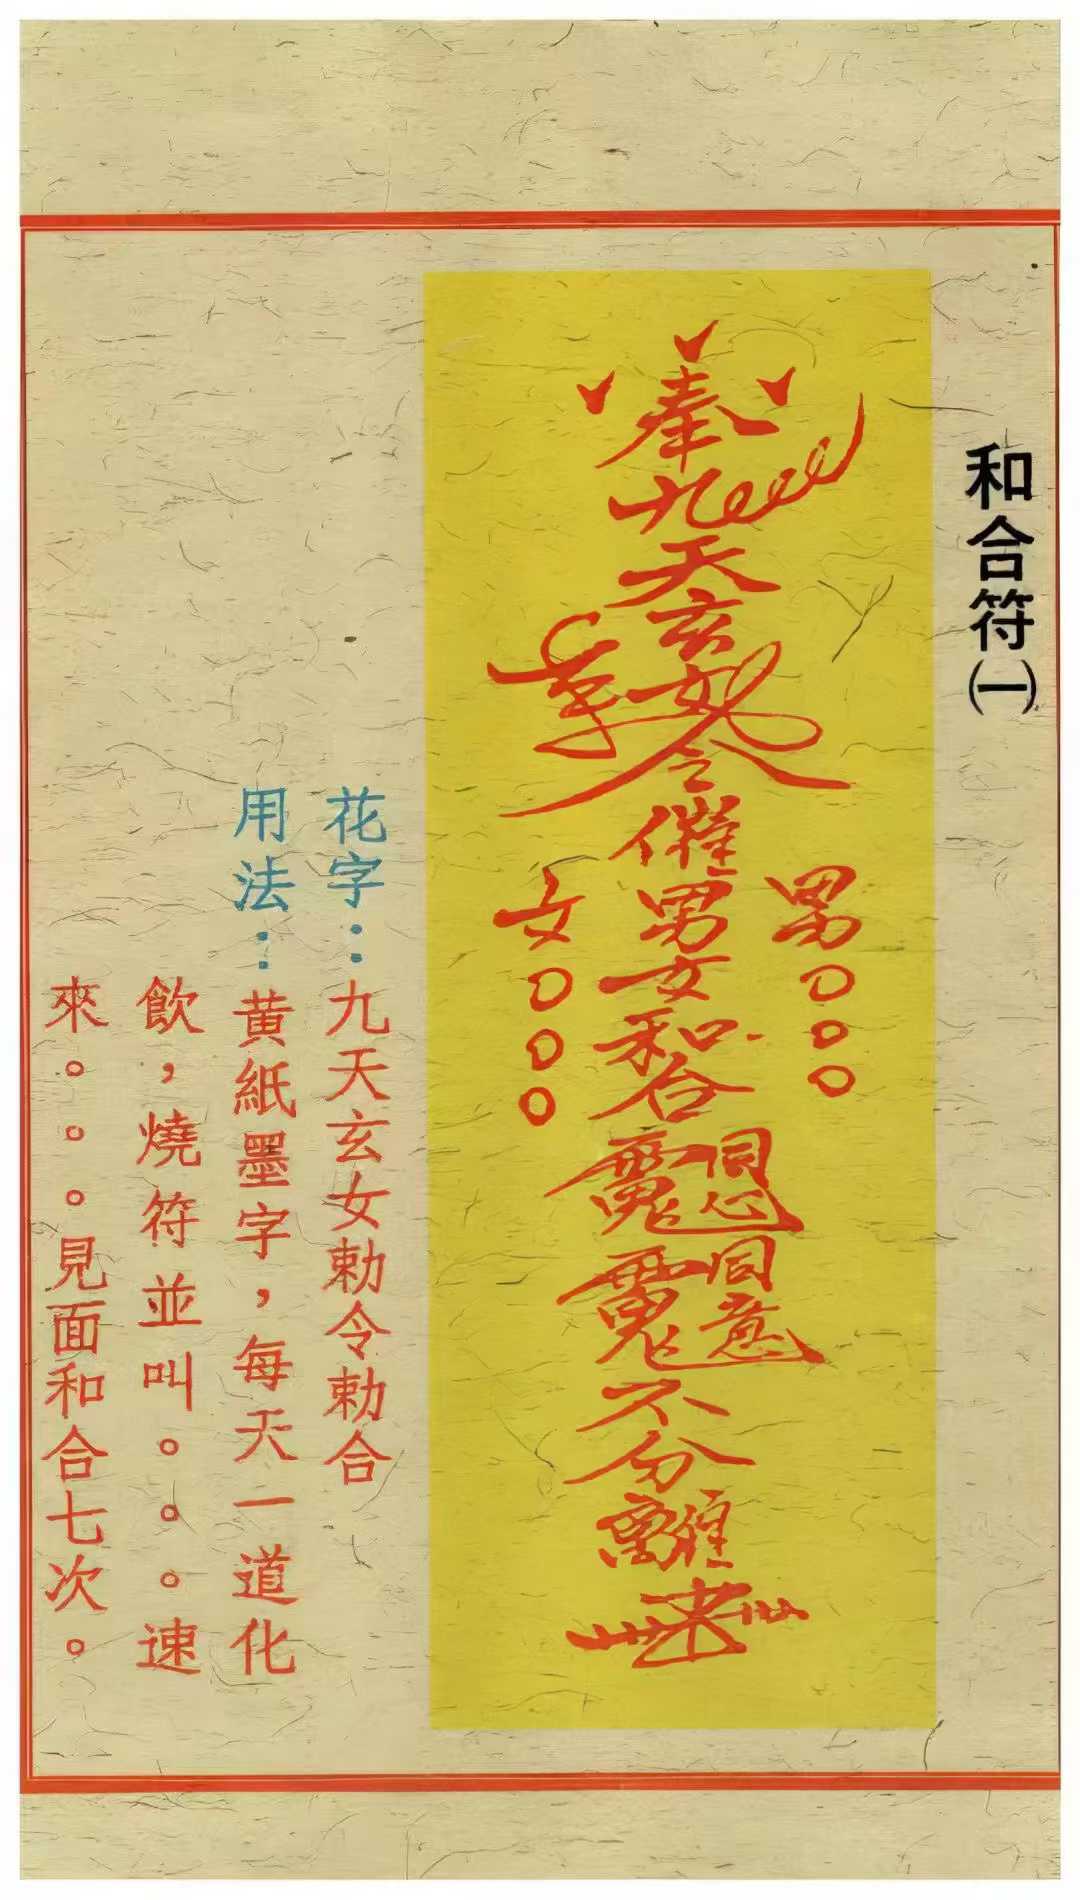 和合符㈠
奉九天玄女令催男女和合同心同意不分離
男○○○
女○○○
花字：九天玄女勅令勅合
用法：黄紙墨字，每天一道化
飲，燒符並叫○○○速
來○○○見面和合七次。